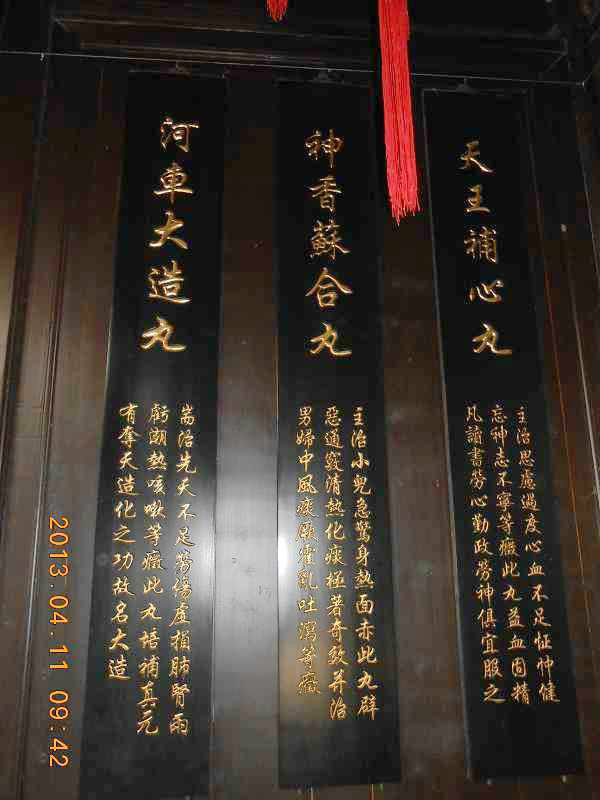 天王補心丸
主治思慮過度心血不足怔忡健
忘神志不寧等癥此丸益血固精
凡讀書勞心勤政勞神俱宜服之
神香蘇合丸
主治小兒急驚身熱面赤此丸辟
惡通竅清熱化痰極著奇效并治
男婦中風痰厥霍亂吐瀉等癥
河車大造丸
耑治先天不足勞傷虛損肺腎兩
虧潮熱咳嗽等癥此丸培補真元
有奪天造化之功故名大造
2013.04.11 09:42